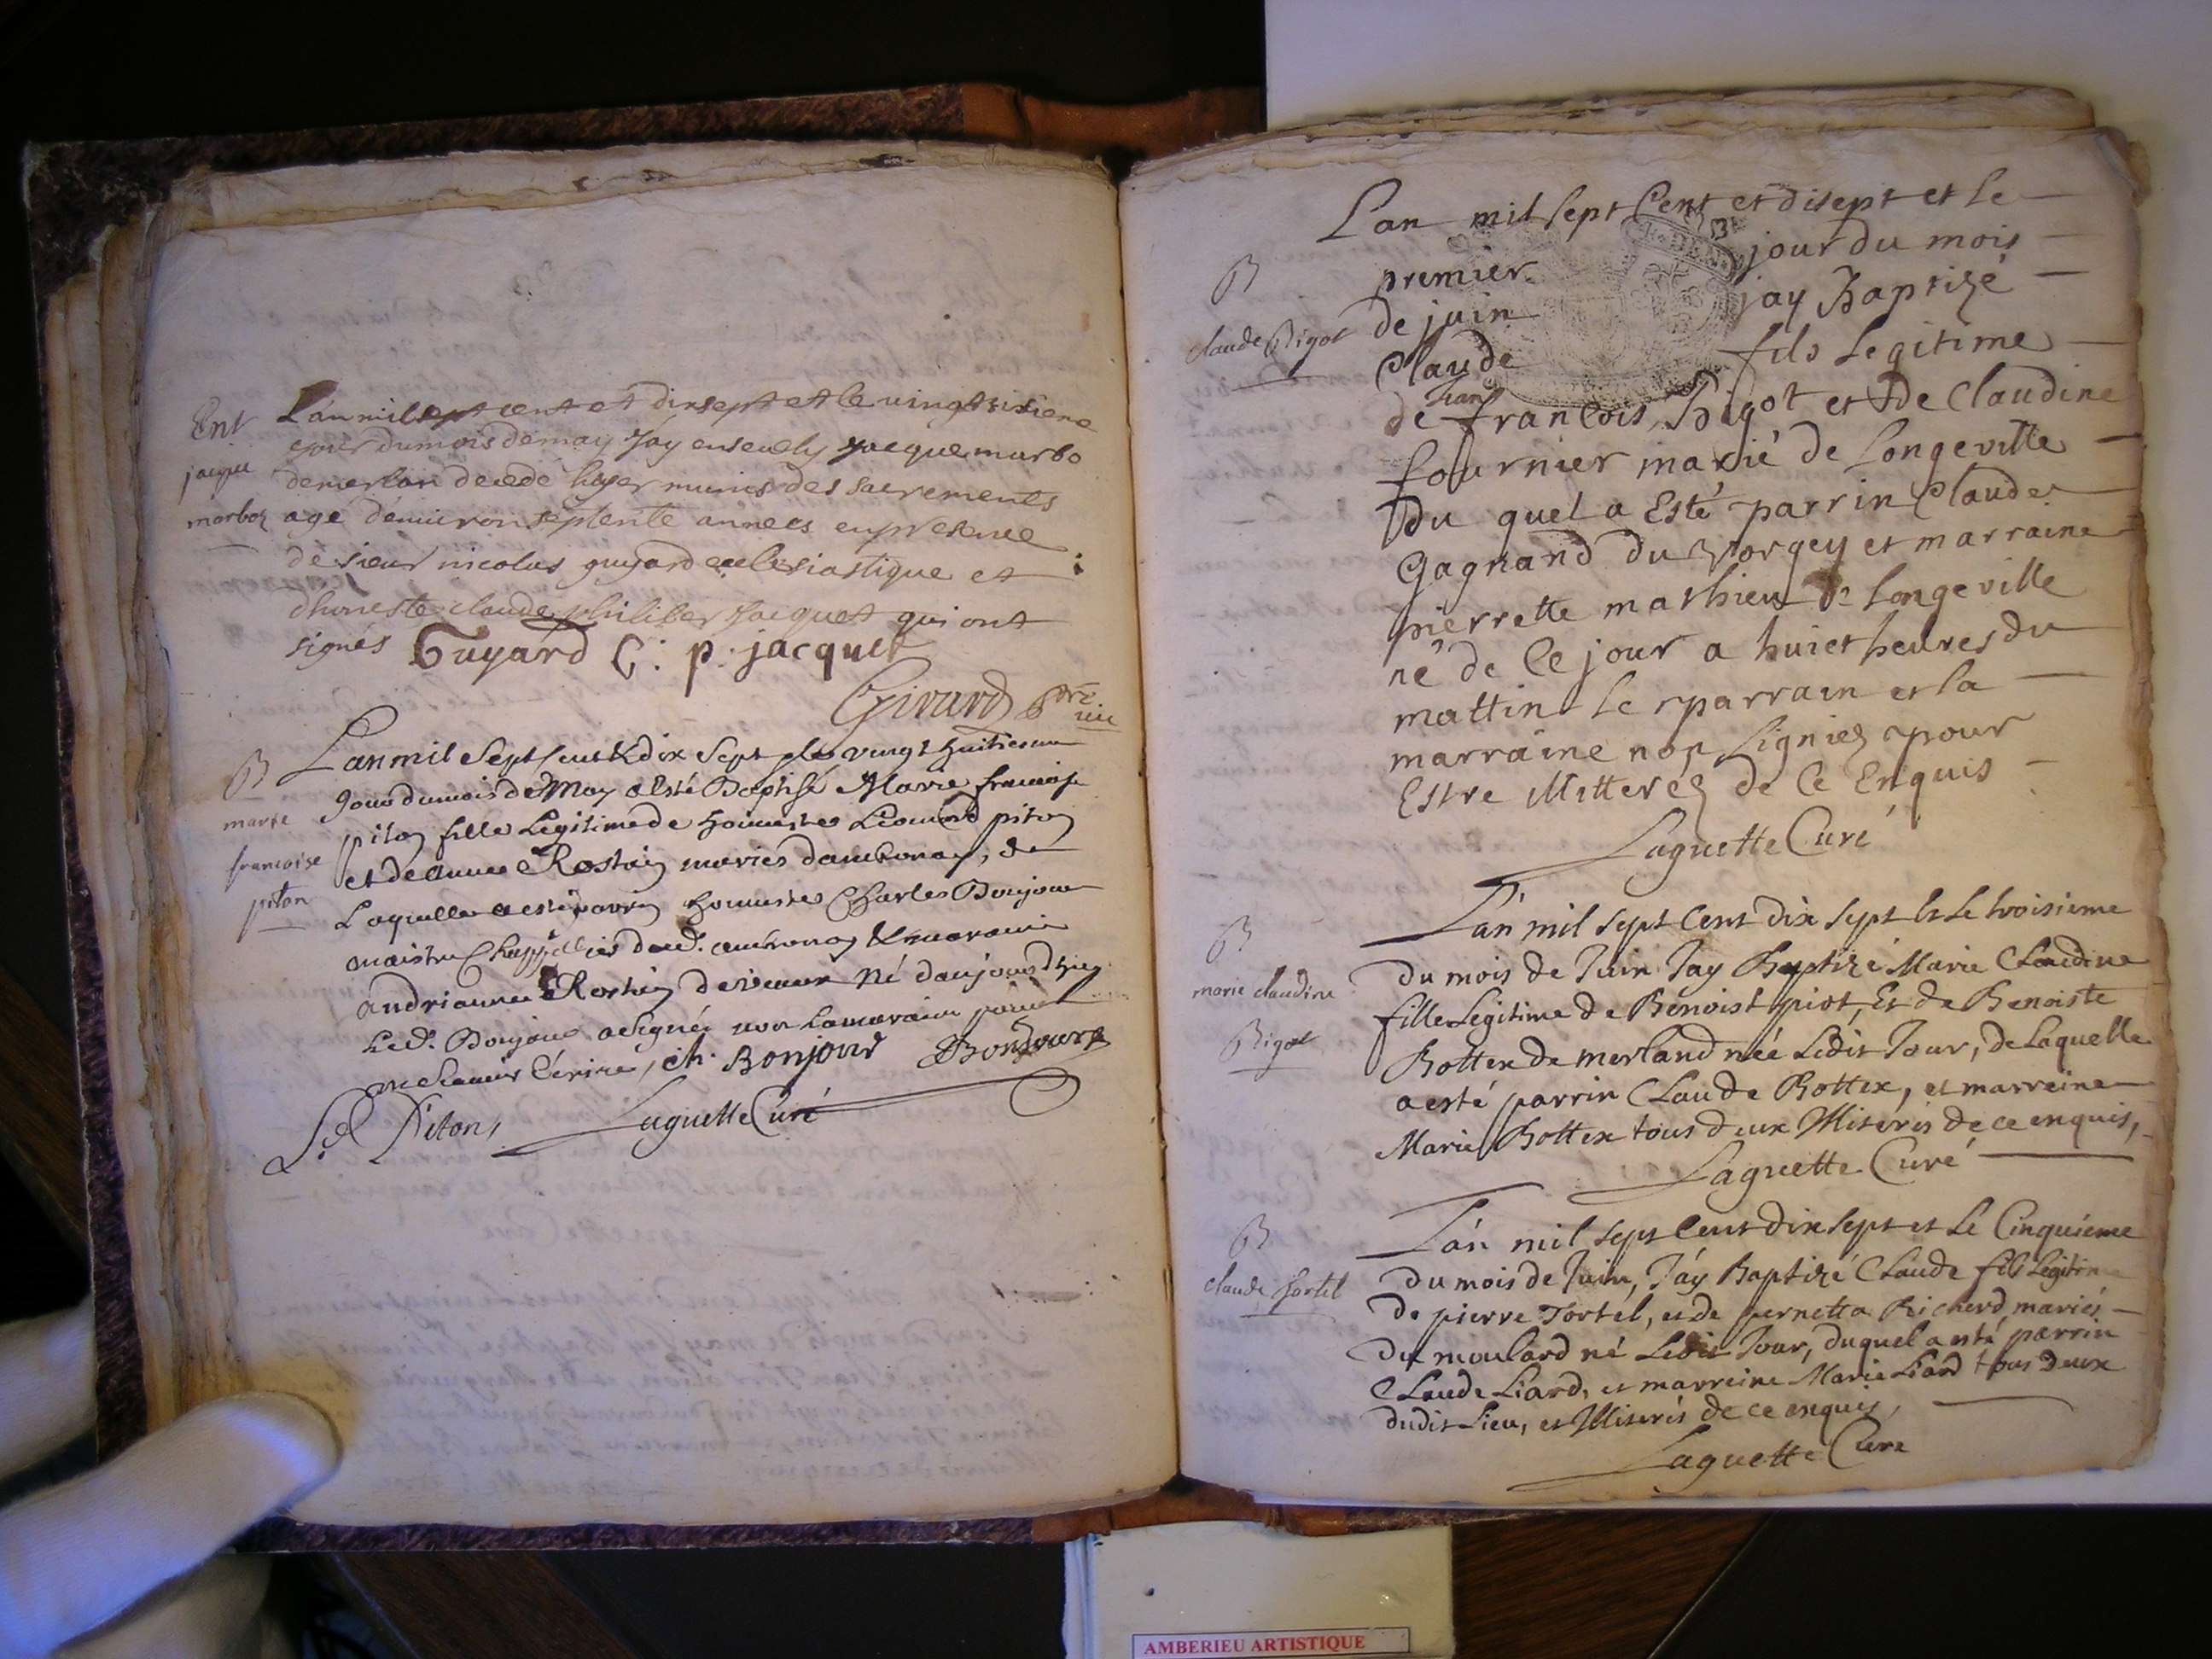 Ent
jacque
morboz
Lan mil sept cent et dixsept et le vingt sixiene
jour du mois de may Jay ensevely jacque murbo
de merlan decedé hyer munis des sacrements
agé denviron septente années en presence
de sieur nicolas guyard ecclesiastique et
dhoneste claude philiber Jacquet qui ont
signés Guyard C: p: jacquet
Girard ptre vic
B
marie
francoise
piton
Lan mil Sept Cent & dix Sept & le vingt huitiesme
Jour du mois de May a Esté Baptisé Marie francoise
piton fille Legitime de honneste Leonard piton
et de anne Rostain mariés dambronay, de
Laquelle a esté parrin honneste Charles Bonjour
maistre Chappellier dud. ambronay & maraine
andrianne Rostain de né daujourdhuy
Led. Bonjour a Signé non La maraine pour
ne Scavoir Ecrire, ch. Bonjour Bonjour
L. Piton, Laguette Curé
Lan mil sept Cent et disept et le
B
claude Bigot
premier jour du mois
de juin jay Baptizé
Claude fils Legitime
de francois Bigot et de Claudine
fournier marié de Longeville
Du quel a Esté parrin Claude
Gagnand du Vorgey et marraine
pierrette mathieu de Longeville
né de Ce jour a huict heures du
mattin Le parrain et la
marraine non Signiez pour
Estre Illitterez de Ce Enquis
Laguette Curé
B
marie claudine
Bigot
Lán mil sept Cent dix sept Et Le troisieme
du mois de Juin Jay Baptizé Marie Claudine
fille Legitime de Benoist piot, Et de Benoiste
Bottex de merland née Ledit Jour, de Laquelle
a esté parrin Claude Bottex, et marreine
Marie Bottex tous deux Illiterés de ce enquis,
Laguette Curé
B
claude tortel
Lán mil sept Cent dix sept et Le Cinquieme
du mois de Juin, Jáy Baptizé Claude fils Legitime
de pierre Tortel, et de pernetta Richerd, mariés
du moulard né Ledit Jour, duquel a esté parrin
Claude Liard, et marreine Marie Liard tous deux
dudit Lieu, et Illiterés de ce enquis,
Laguette Cure
AMBERIEU ARTISTIQUE